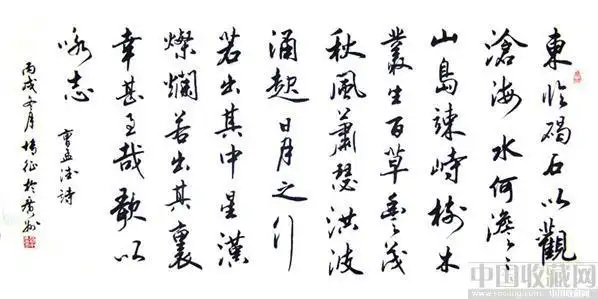 東臨碣石以觀
滄海水何澹々
山島竦峙樹木
叢生百草豐茂
秋風蕭瑟洪波
涌起日月之行
若出其中星漢
燦爛若出其裏
幸甚至哉歌以
咏志
曹孟德詩
丙戌冬月
中国收藏网